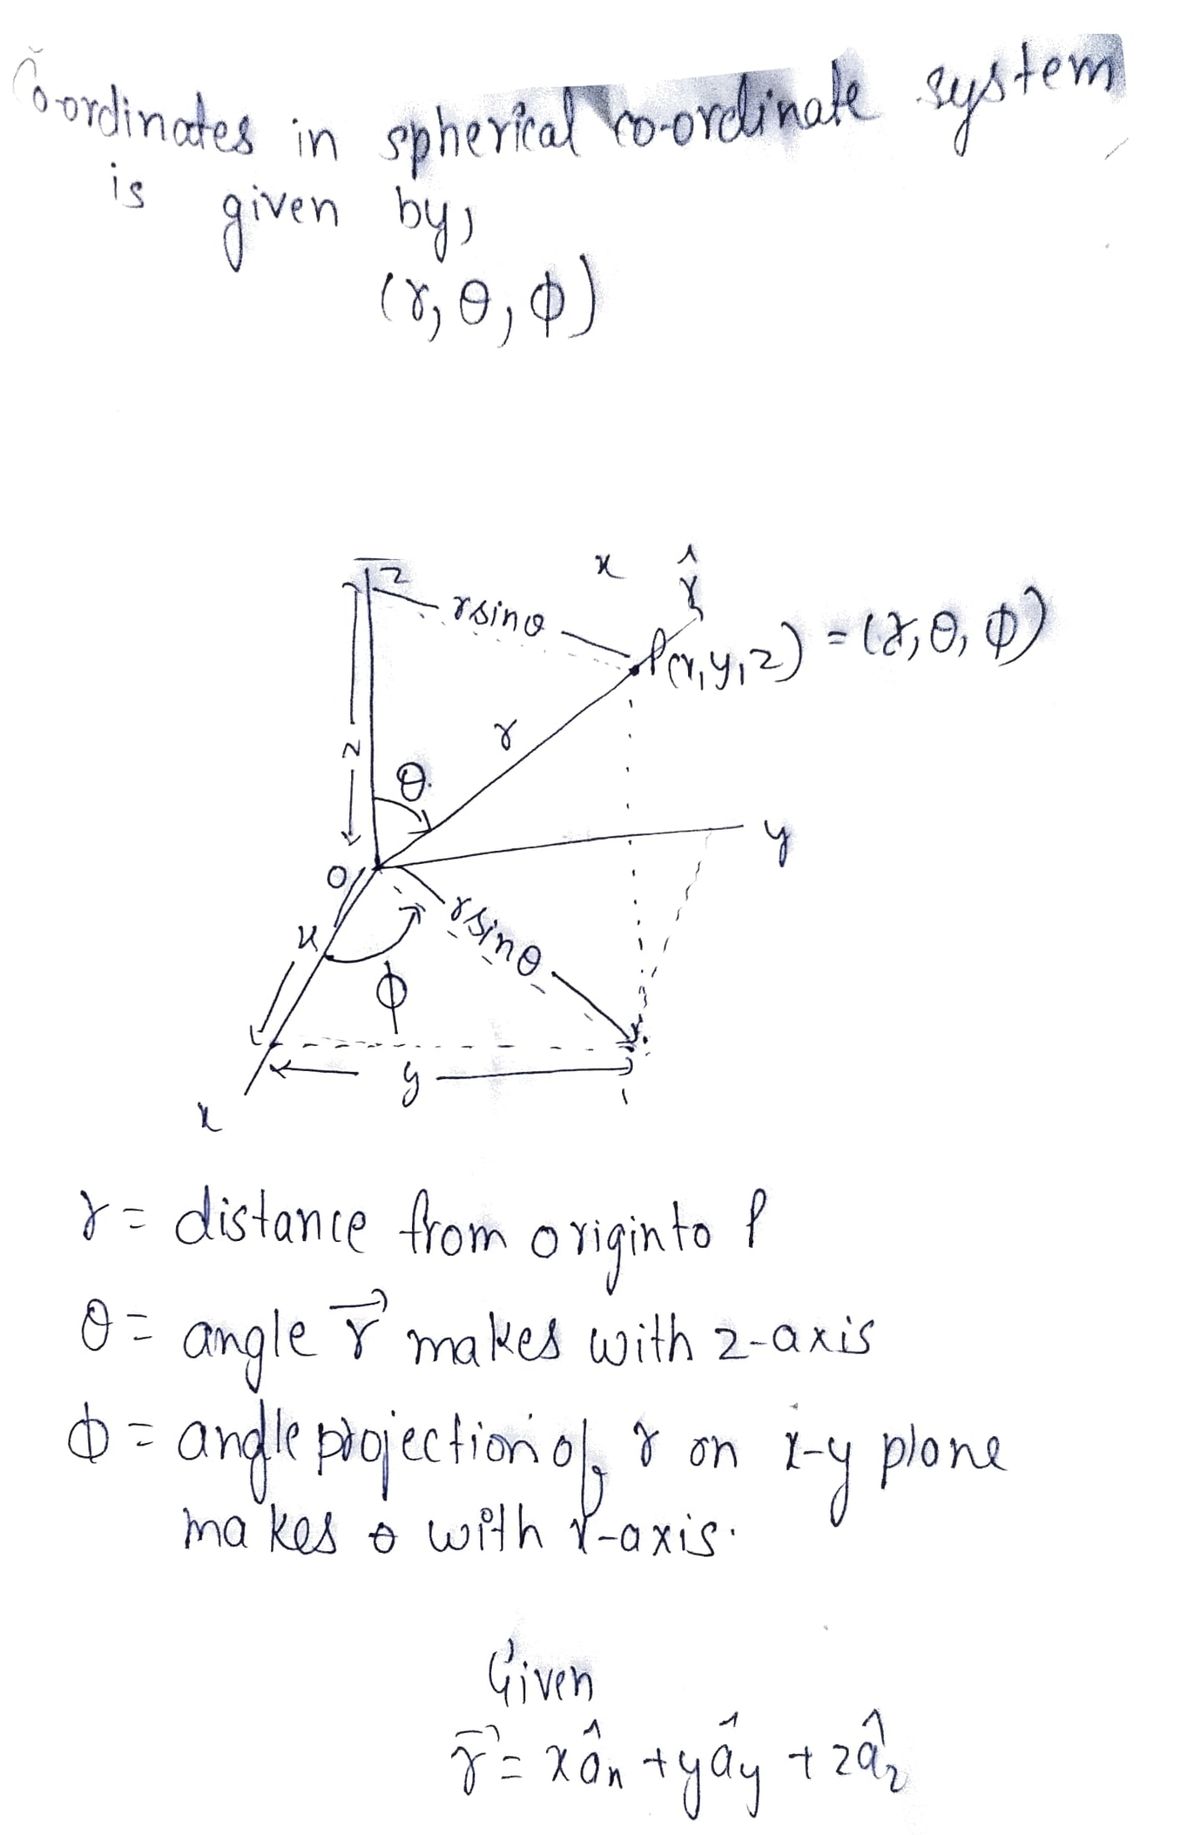 Co-ordinates in spherical co-ordinate system
is given by,
(r, θ, ϕ)
z
x
r̂
rsinθ
P(x,y,z) = (r, θ, ϕ)
r
z
θ
y
O
x
rsinθ
ϕ
y
x
r = distance from origin to P
θ = angle r⃗ makes with z-axis
ϕ = angle projection of r on x-y plane
makes θ with x-axis.
Given
r⃗ = xâx + yây + zâz